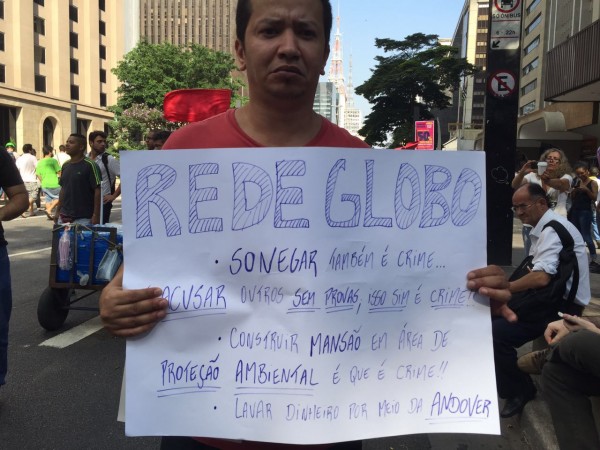 REDE GLOBO
• SONEGAR TAMBÉM É CRIME...
ACUSAR OUTROS SEM PROVAS, ISSO SIM É CRIME!
• CONSTRUIR MANSÃO EM ÁREA DE
PROTEÇÃO AMBIENTAL É QUE É CRIME!!
• LAVAR DINHEIRO POR MEIO DA ANDOVER